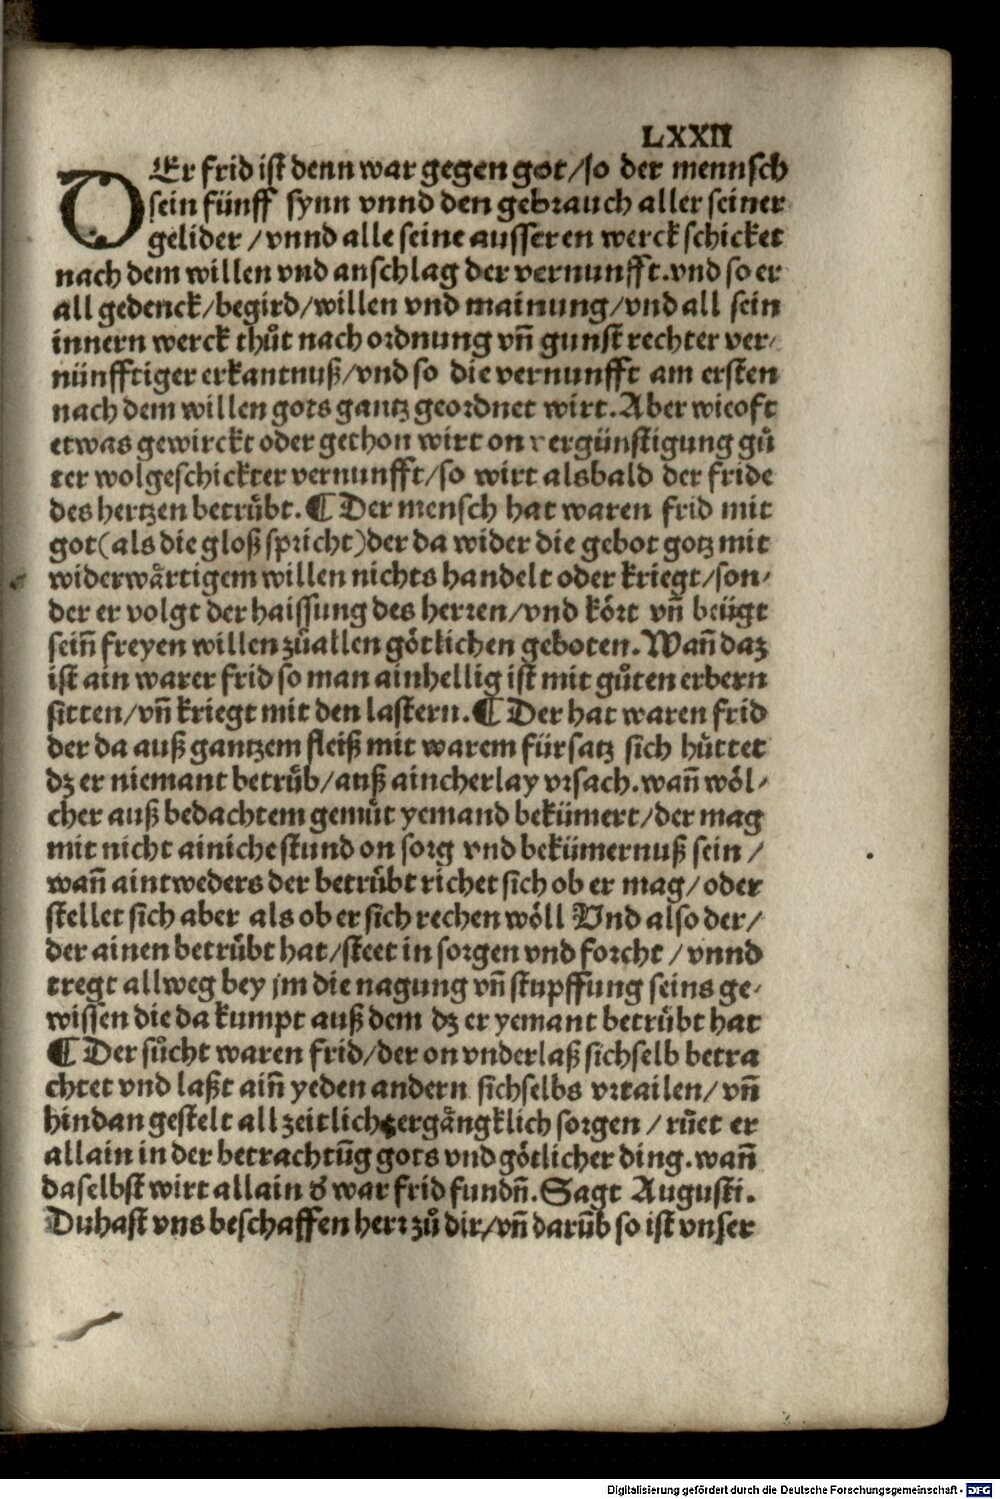 LXXII
DEr frid ist denn war gegen got/so der mennsch
sein fünff synn vnnd den gebrauch aller seiner
gelider /vnnd alle seine ausseren werck schicket
nach dem willen vnd anschlag der vernunfft.vnd so er
all gedenck/begird/willen vnd mainung/vnd all sein
innern werck thůt nach ordnung vñ gunst rechter ver⸗
nünfftiger erkantnuß/vnd so die vernunfft am ersten
nach dem willen gots gantz geordnet wirt.Aber wieoft
etwas gewirckt oder gethon wirt on vergünstigung gů
ter wolgeschickter vernunfft/so wirt alsbald der fride
des hertzen betruͤbt.¶ Der mensch hat waren frid mit
got(als die gloß spricht)der da wider die gebot gotz mit
widerwaͤrtigem willen nichts handelt oder kriegt/son⸗
der er volgt der haissung des herren/vnd koͤrt vñ beügt
seiñ freyen willen zůallen goͤtlichen geboten.Wañ daz
ist ain warer frid so man ainhellig ist mit gůten erbern
sitten/vñ kriegt mit den lastern.¶ Der hat waren frid
der da auß gantzem fleiß mit warem fürsatz sich huͤttet
dz er niemant betruͤb/auß aincherlay vrsach.wañ woͤl⸗
cher auß bedachtem gemuͤt yemand bekümert/der mag
mit nicht ainiche stund on sorg vnd bekümernuß sein /
wañ aintweders der betruͤbt richet sich ob er mag/oder
stellet sich aber als ob er sich rechen woͤll Vnd also der/
der ainen betruͤbt hat/steet in sorgen vnd forcht / vnnd
tregt allweg bey jm die nagung vñ stupffung seins ge⸗
wissen die da kumpt auß dem dz er yemant betruͤbt hat
¶ Der sůcht waren frid/der on vnderlaß sichselb betra
chtet vnd laßt aiñ yeden andern sichselbs vrtailen/ vñ
hindan gestelt all zeitlich ergaͤngklich sorgen / růet er
allain in der betrachtũg gots vnd goͤtlicher ding.wañ
daselbst wirt allain d̕ war frid fundñ.Sagt Augusti.
Du hast vns beschaffen herr zů dir/vñ darũb so ist vnser
Digitalisierung gefördert durch die Deutsche Forschungsgemeinschaft - DFG